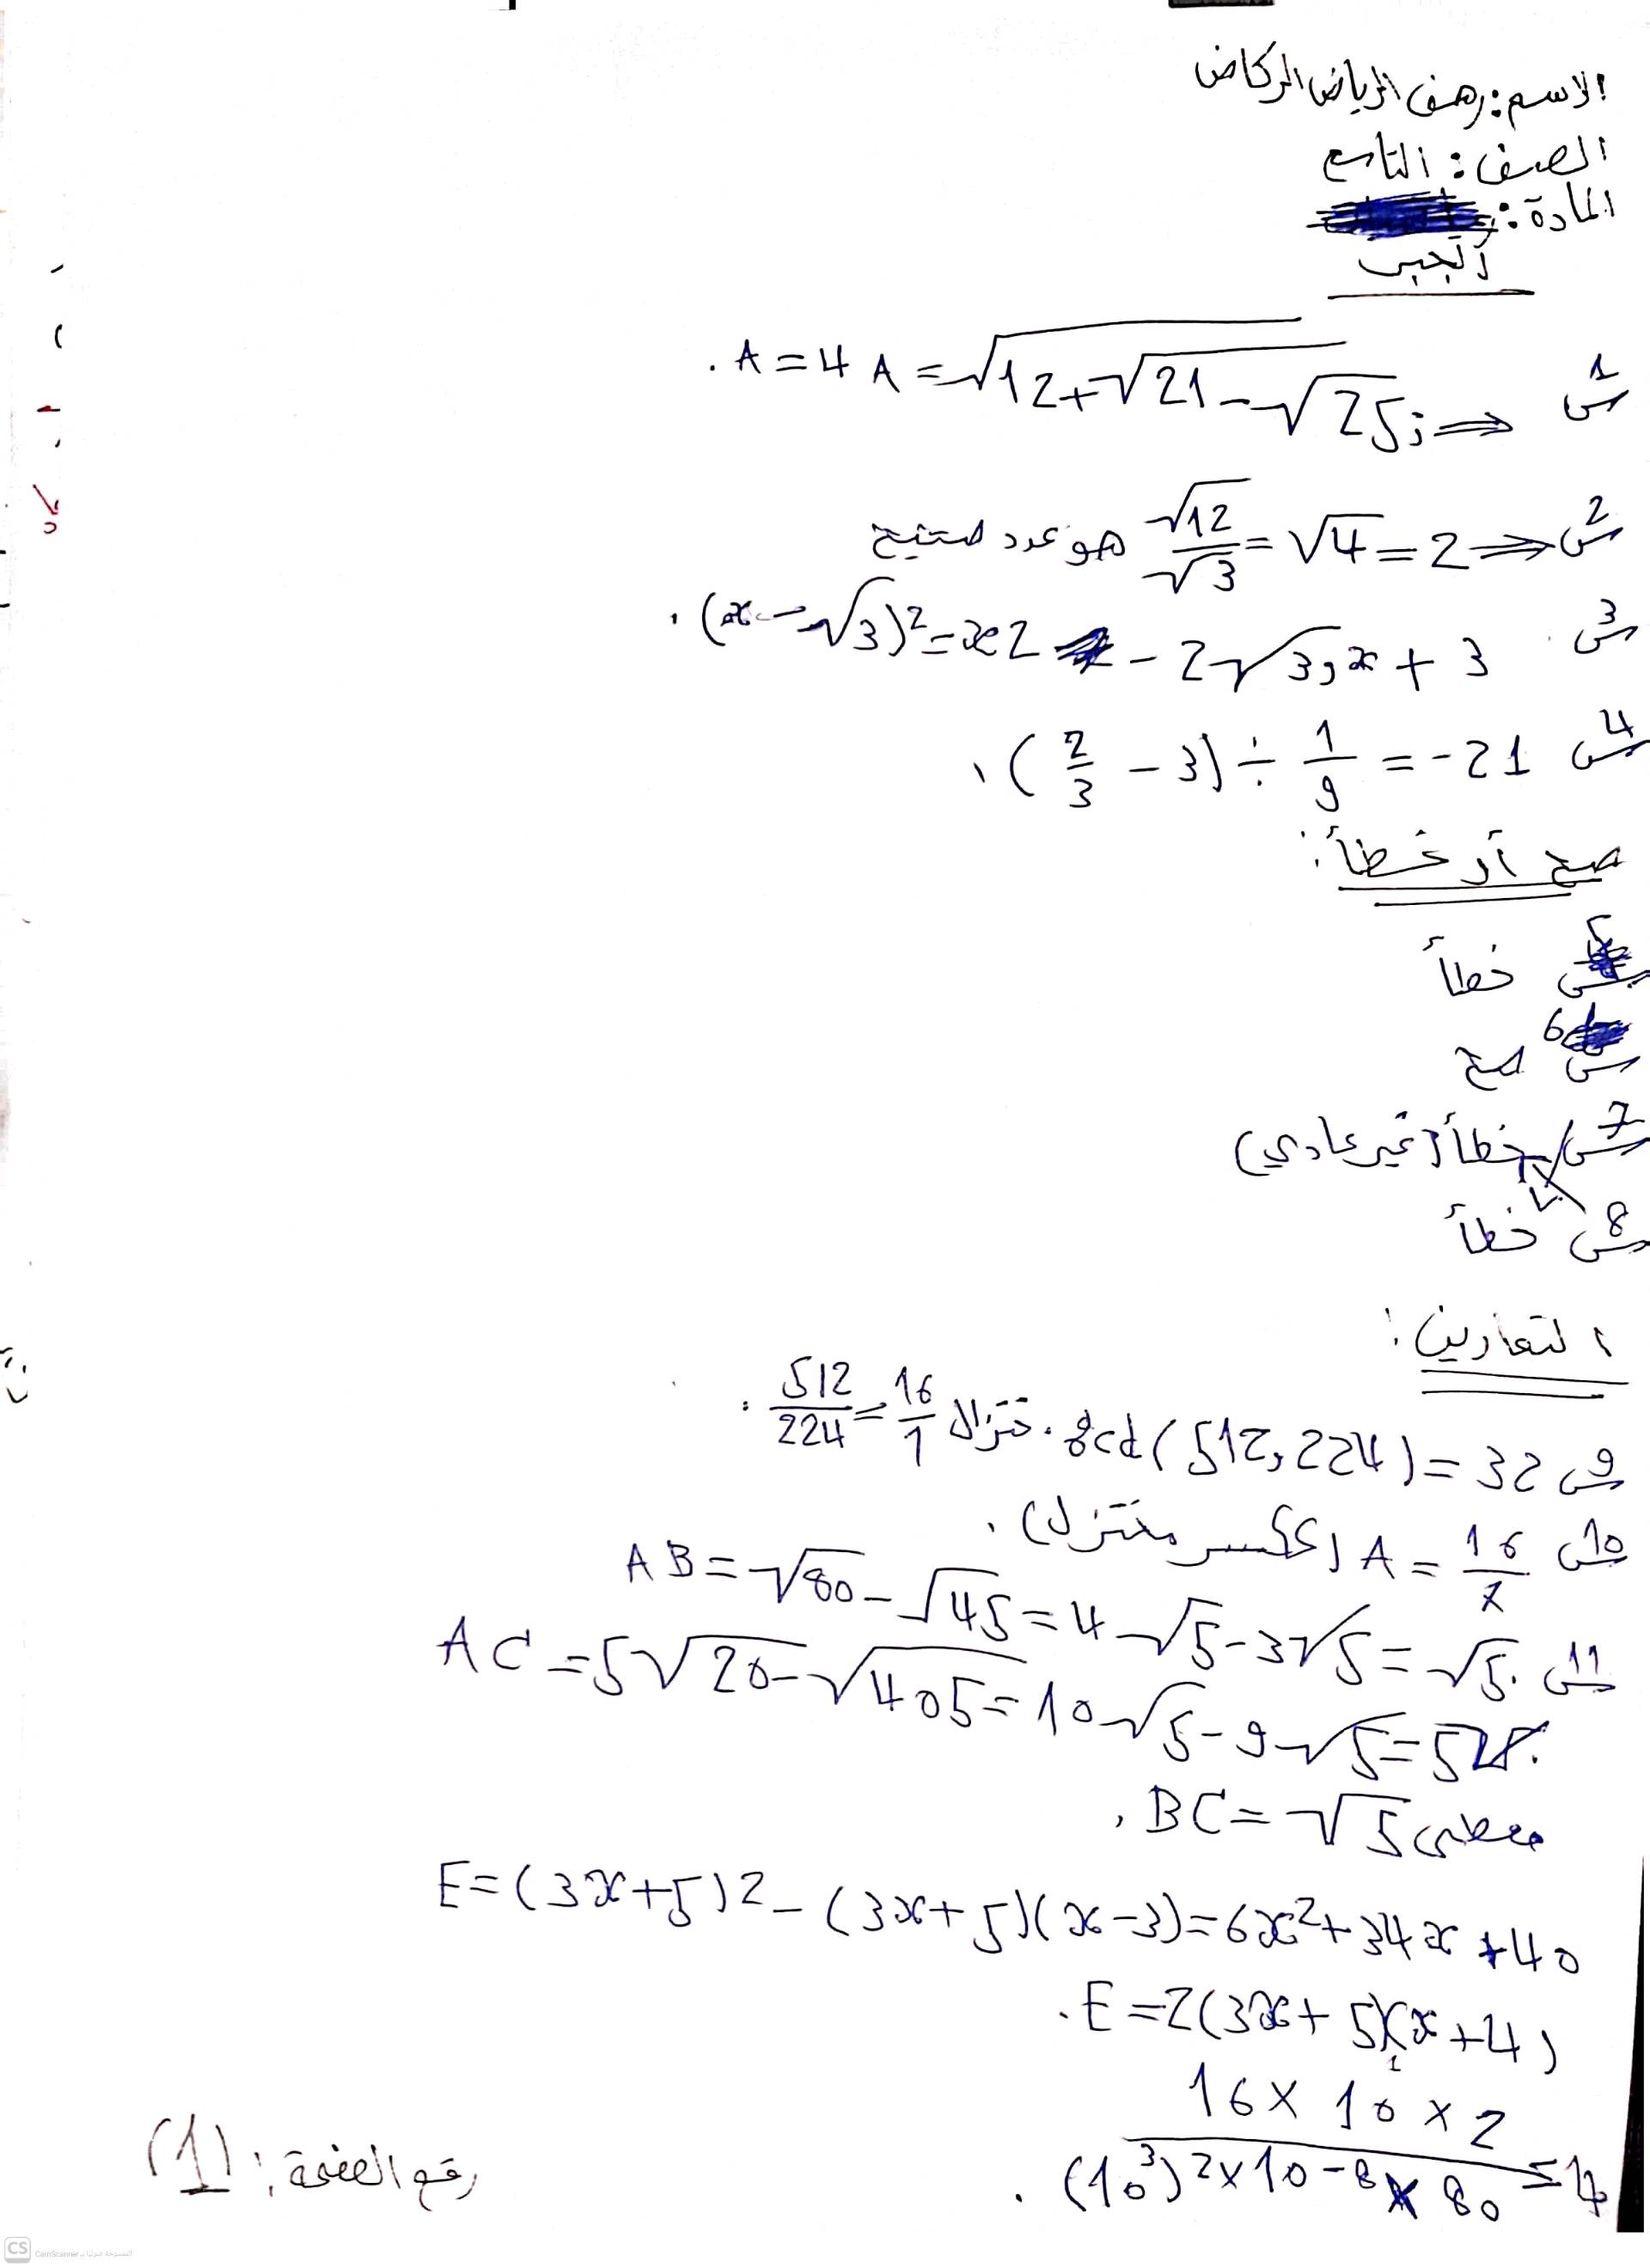 الاسم: رهف الرياض الركاض
الصف: التاسع
المادة:
الجبر
س1 A = 4 A = √12+√21-√25; ⇒
س2 ⇒ √12/√3 = √4 = 2 هو عدد صحيح
س3 (x-√3)² = x2 - 2√3,x + 3
س4 (2/3 - 3) ÷ 1/9 = -21
صح أو خطأ:
س5 خطأ
س6 صح
س7 خطأ (غير عادي)
س8 خطأ
التمارين:
س9 gcd(512,224) = 32 . ختزال 512/224 = 16/1
س10 A = 16/7 (ككسر مختزل).
س11 AB = √80 - √45 = 4√5 - 3√5 = √5.
AC = 5√20 - √405 = 10√5 - 9√5 =
BC = √5 معطى
E = (3x+5)2 - (3x+5)(x-3) = 6x²+34x+40
E = 2(3x+5)(x+4)
16 × 10 × 2 / (10³)2 × 10-8 × 80 = 4
رقم الصفحة: (1)
CS CamScanner الممسوحة ضوئيا بـ